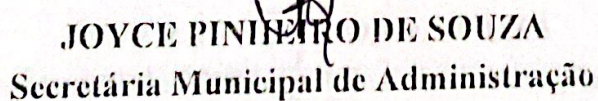 JOYCE PINHEIRO DE SOUZA
Secretária Municipal de Administração